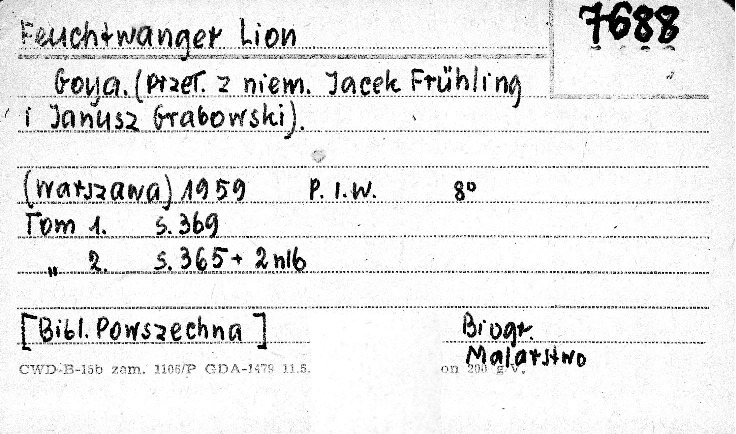 7688
Feuchtwanger Lion
Goya. (przeł. z niem. Jacek Frühling
i Janusz Grabowski).
(Warszawa) 1959 P. I. W. 8°
Tom 1. s. 369
„ 2. s. 365 + 2 nlb
[Bibl. Powszechna] Biogr.
Malarstwo
CWD-B-15b zam. 1106/P GDA-1479 11.5. on 200 g V.